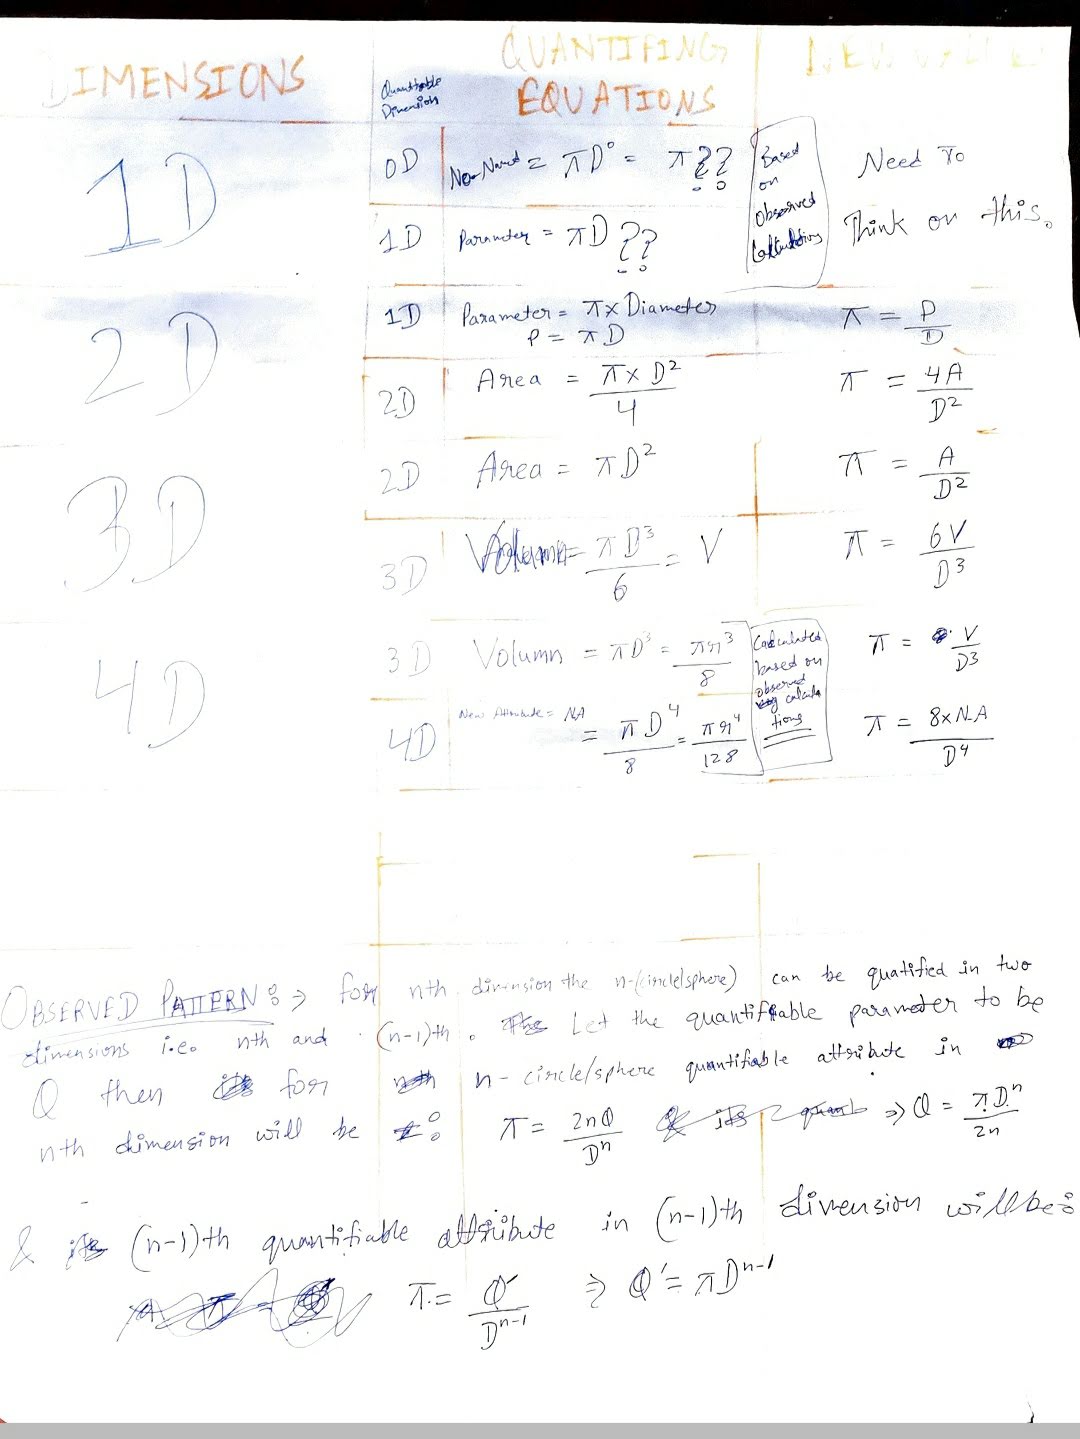 DIMENSIONS
Quantifiable Dimensions
QUANTIFING EQUATIONS
1D
0D
= πD⁰ = π ??
Based on observed calculations
Need To Think on this.
1D
Parameter = πD ??
2D
1D
Parameter = π x Diameter
P = πD
π = P/D
2D
Area = π x D²/4
π = 4A/D²
3D
2D
Area = πD²
π = A/D²
3D
Volumn = πD³/6 = V
π = 6V/D³
4D
3D
Volumn = πD³ = πr³/8
Calculated based on observed calculations
π = V/D³
4D
New Attribute = NA
= πD⁴/8 = πr⁴/128
π = 8xNA/D⁴
OBSERVED PATTERN: ⇒ for nth dimension the n-(circle/sphere) can be quatified in two
dimensions i.e. nth and (n-1)th. Let the quantifiable parameter to be
Q then for n-circle/sphere quantifiable attribute in
nth dimension will be : π = 2nQ/Dⁿ ⇒ Q = πDⁿ/2n
& (n-1)th quantifiable attribute in (n-1)th dimension will be:
π = Q'/Dⁿ⁻¹ ⇒ Q' = πDⁿ⁻¹